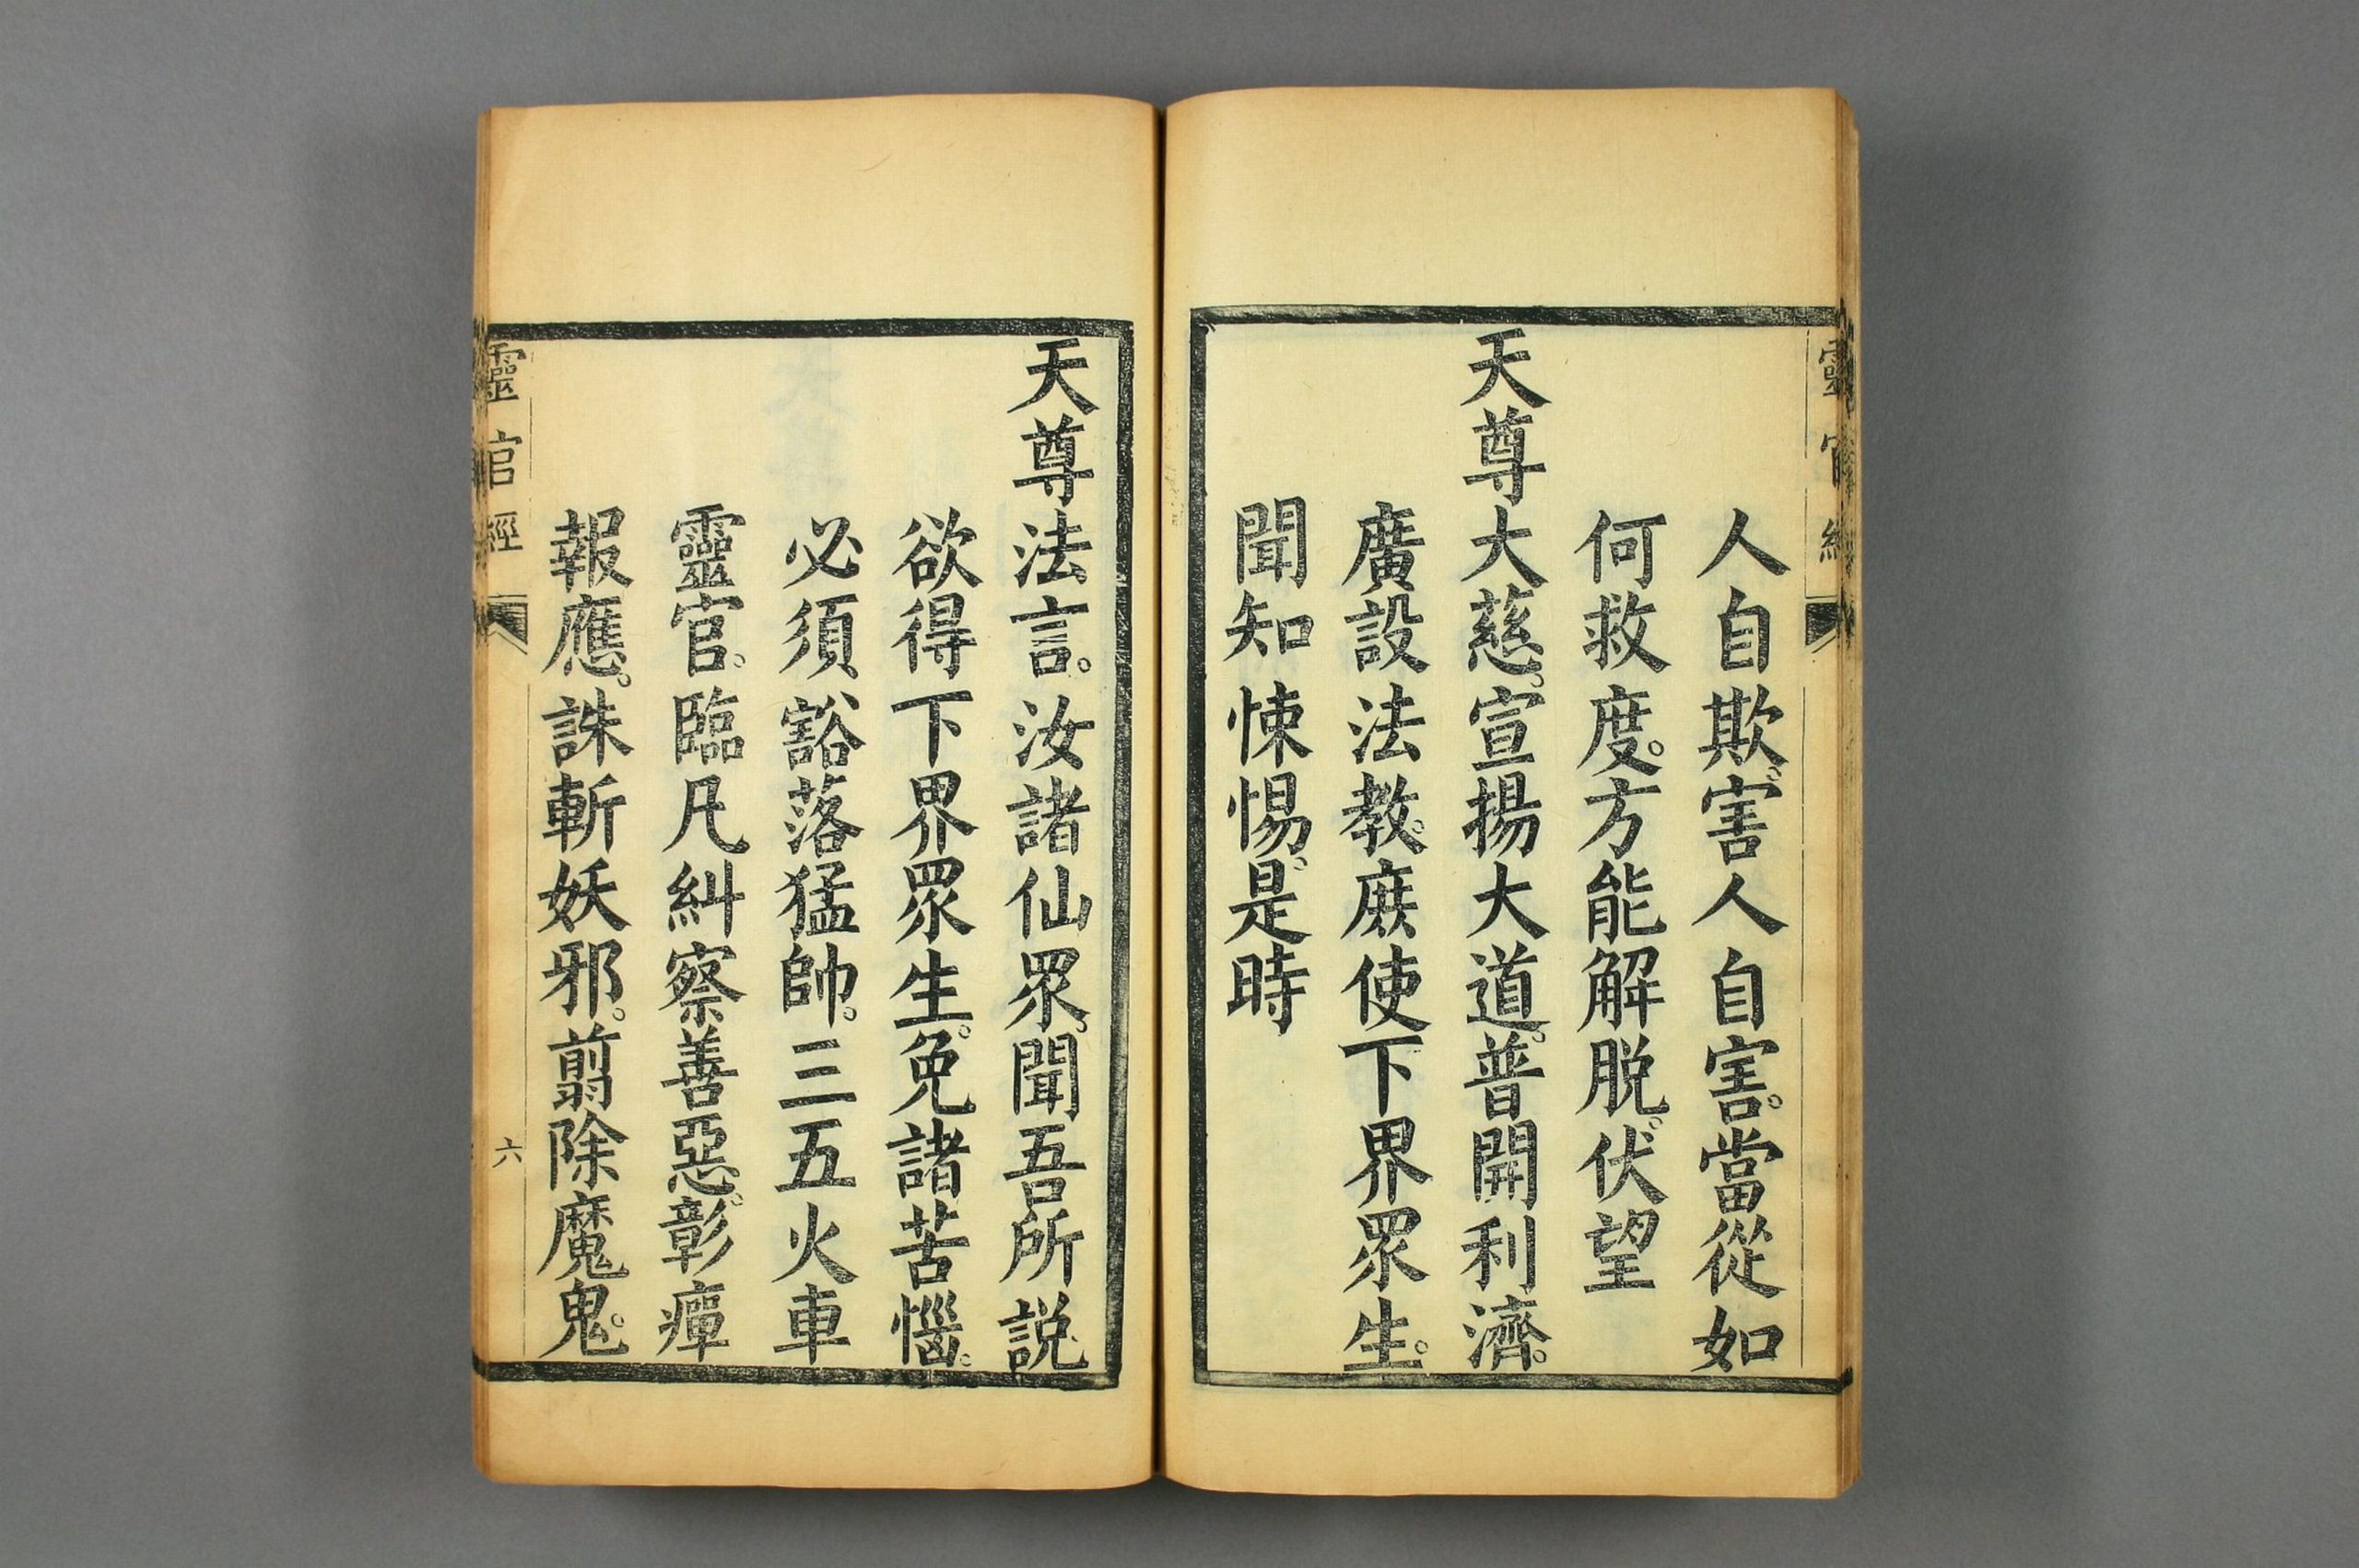 靈官經
人自欺。害人自害。當從如
何救度。方能解脱。伏望
天尊大慈。宣揚大道。普開利濟。
廣設法教。庶使下界眾生。
聞知悚惕。是時
天尊法言。汝諸仙眾。聞吾所説
欲得下界眾生。免諸苦惱。
必須豁落猛帥。三五火車
靈官。臨凡糾察善惡。彰癉
報應。誅斬妖邪。翦除魔鬼。
靈官經
六